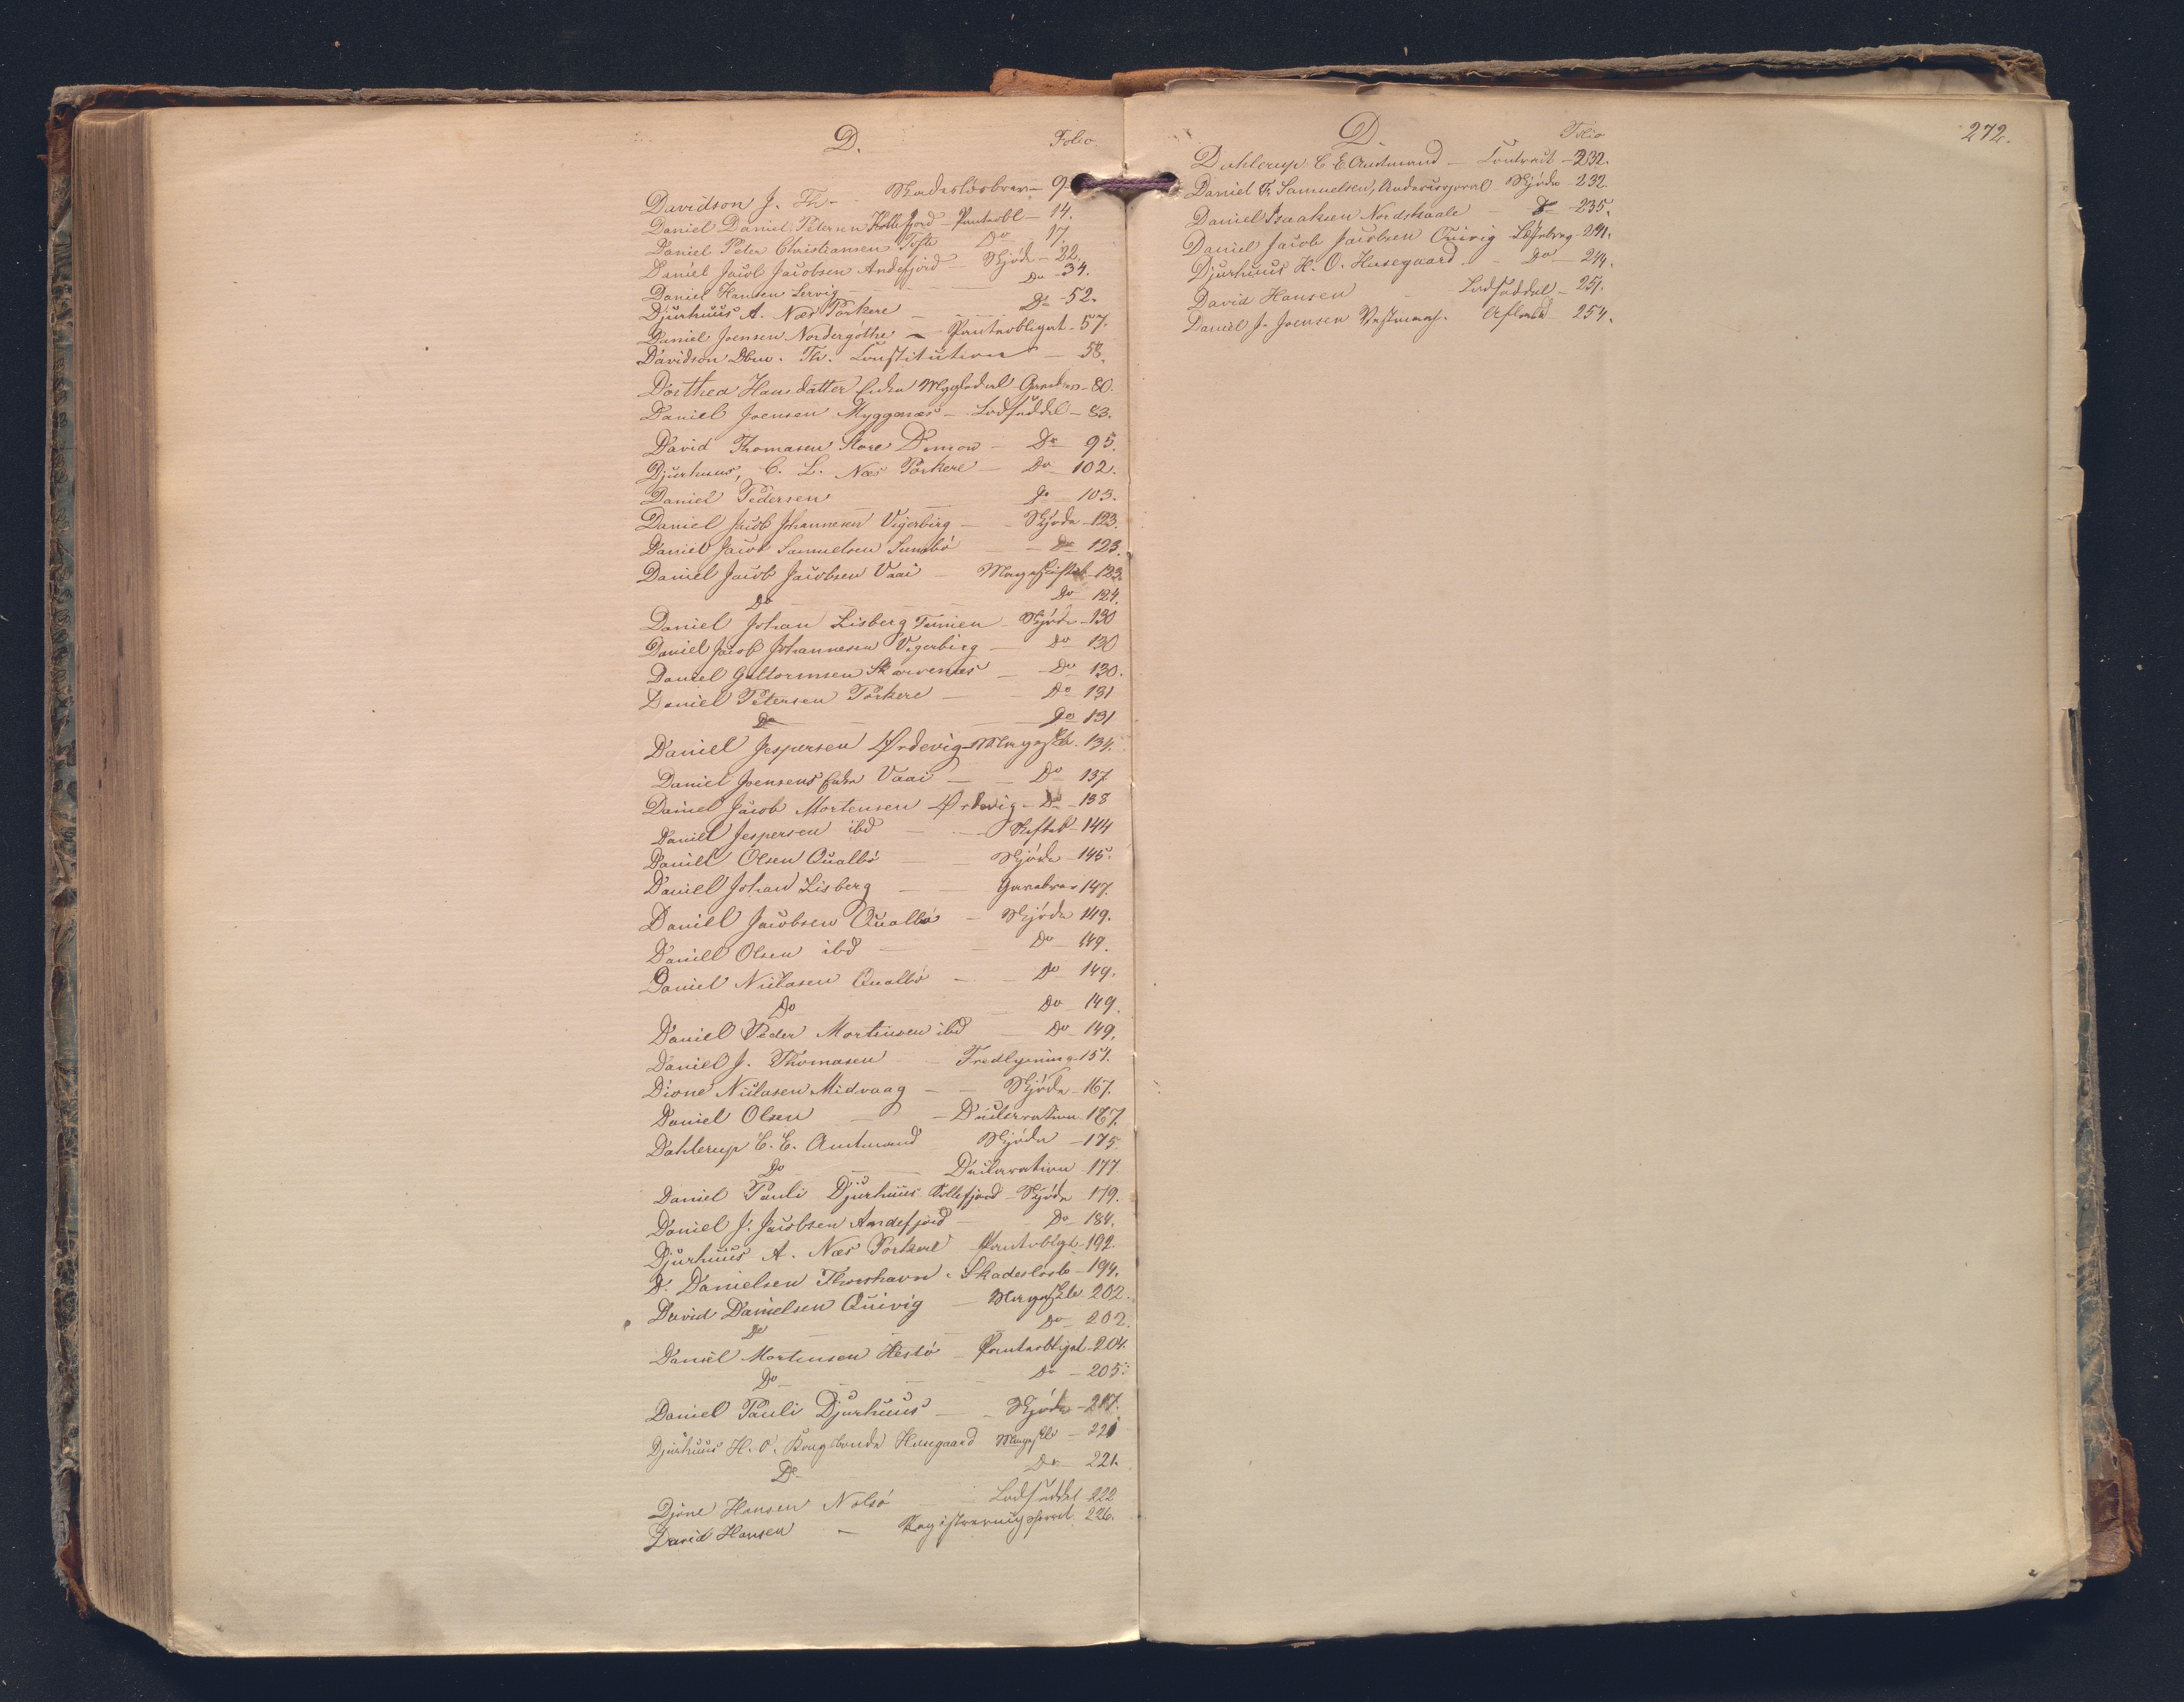 D.
Folio
Davidson J. Th - Skadeslösbrev - 9
Daniel Daniel Petersen Kollefjord - Panteobl - 14.
Daniel Peter Christiansen Tofte Do 17.
Daniel Jacob Jacobsen Andefjord - Skjöde - 22.
Daniel Hansen Lervig - Do - 34.
Djurhuus A. Næs Porkere - Do - 52.
Daniel Joensen Nordergöthe - Panteobligat - 57.
Davidson Th. Constitution - 58.
Dorthea Hansdatter Enke Mygledal - 80.
Daniel Joensen Myggenæs - Lodseddel - 83.
David Thomasen Store Dimon - Do 95.
Djurhuus, C. L. Næs Porkere - Do 102.
Daniel Pedersen Do - 103.
Daniel Jacob Johannesen Vigerbirg - Skjöde - 123.
Daniel Jacob Samuelsen Sumbö - Do 123.
Daniel Jacob Jacobsen Vaai - Mageskifteb - 123.
Do - Do 124.
Daniel Johan Lisberg Famien - Skjöde - 130
Daniel Jacob Johannesen Vigerbirg - Do 130
Daniel Guttormsen Skarvenæs - Do 130.
Daniel Petersen Porkere - Do 131
Do - Do 131
Daniel Jespersen Ørdevig - Mageskb. 134.
Daniel Joensens Enke Vaai - Do 137.
Daniel Jacob Mortensen Ørdevig - Do - 138
Daniel Jespersen ibd - Skifteb - 144
Daniel Olsen Qualbö - Skjöde - 145.
Daniel Johan Lisberg - Gavebrev 147.
Daniel Jacobsen Qualbö - Skjöde 149.
Daniel Olsen ibd - Do - 149.
Daniel Niclasen Qualbö - Do 149.
Do Do 149.
Daniel Peder Mortensen ibd - Do - 149.
Daniel J. Thomasen - Fredlysning 154.
Dione Niclasen Midvaag - Skjöde - 167.
Daniel Olsen - Declaration 167.
Dahlerup C. E. Amtmand Skjöde - 175
Do - Declaration 177
Daniel Pauli Djurhuus Kollefjord - Skjöde 179.
Daniel J. Jacobsen Andefjord - Do - 184.
Djurhuus A. Næs Porkere Panteobligt - 192.
D. Danielsen Thorshavn - Skadeslosb - 194.
David Danielsen Quivig - Mageskb 202.
Do - Do 202.
Daniel Mortensen Hestö - Panteobligat - 204.
Do - Do - 205.
Daniel Pauli Djurhuus - Skjöde - 217.
Djurhuus H. O. Kongsbonde Husegaard Mageskb - 221
Do Do 221.
Djone Hansen Nolsö Lodseddel 222
David Hansen - Registreringsforret 226.
D.
Folio
272.
Dahlerup C. E. Amtmand - Contract - 232.
Daniel Fr. Samuelsen, Skjöde 232.
Daniel Isaaksen Nordskaale - Do - 235.
Daniel Jacob Jacobsen Quivig 241.
Djurhuus H. O. Husegaard - Do - 244.
David Hansen - Lodseddel - 251.
Daniel J. Joensen Vestmanh. Afkald 254.